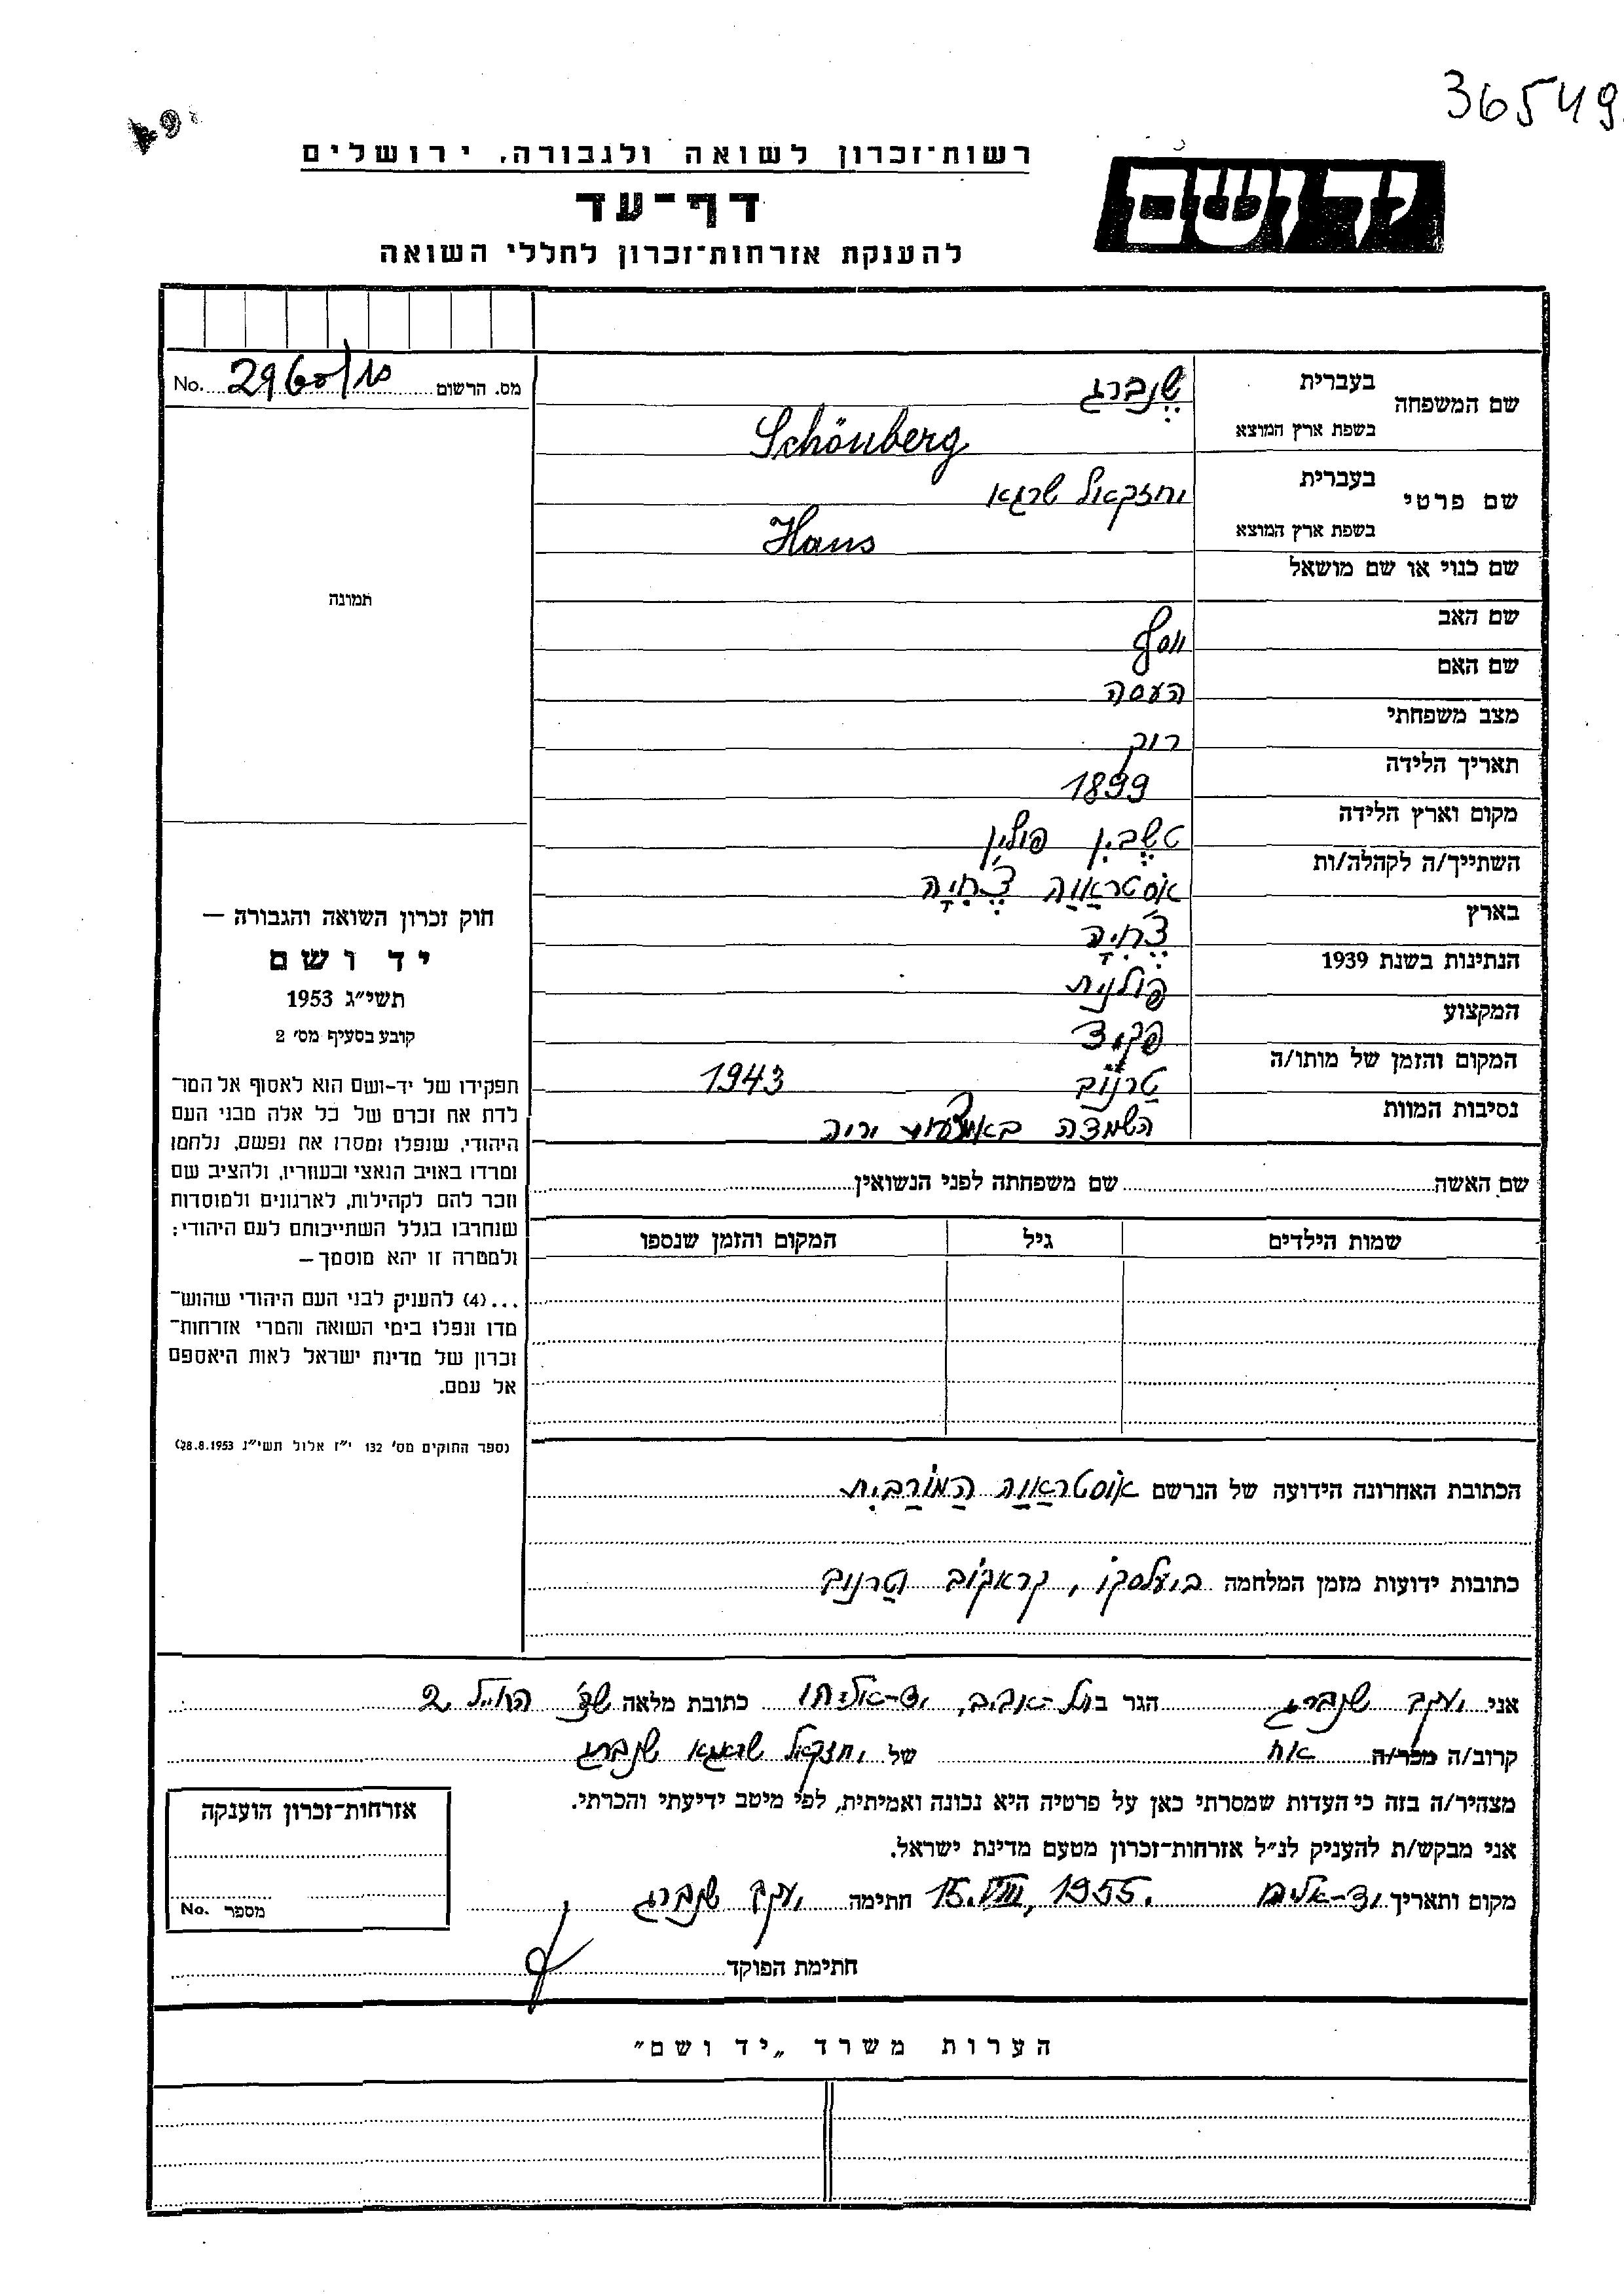 36549
רשות-זכרון לשואה ולגבורה, ירושלים
יד ושם
דף-עד
להענקת אזרחות-זכרון לחללי השואה
מס. הרשום No.
שם המשפחה בעברית שֶנְבֶּרג
בשפת ארץ המוצא Schönberg
שם פרטי בעברית יחזקאל שרגא
בשפת ארץ המוצא Hans
שם כנוי או שם מושאל
שם האב יוסף
שם האם העסה
מצב משפחתי רווק
תאריך הלידה 1899
מקום וארץ הלידה טשֶבִּין פולין
השתייך/ה לקהלה/ות אוֹסטראַוַה צֶ'כִיָה
בארץ צֶ'כִיָה
הנתינות בשנת 1939 פולנית
המקצוע פקיד
המקום והזמן של מותו/ה טַרנוֹב 1943
נסיבות המוות השמדה באמצעות יריה
שם האשה שם משפחתה לפני הנשואין
שמות הילדים גיל המקום והזמן שנספו
הכתובת האחרונה הידועה של הנרשם אוֹסטראַוַה הַמוֹרַבִית
כתובות ידועות מזמן המלחמה קראקוֹב וטַרנוב
תמונה
חוק זכרון השואה והגבורה —
יד ושם
תשי״ג 1953
קובע בסעיף מס׳ 2
תפקידו של יד-ושם הוא לאסוף אל המו־
לדת את זכרם של כל אלה מבני העם
היהודי, שנפלו ומסרו את נפשם, נלחמו
ומרדו באויב הנאצי ובעוזריו, ולהציב שם
וזכר להם לקהילות, לארגונים ולמוסדות
שנחרבו בגלל השתייכותם לעם היהודי;
ולמטרה זו יהא מוסמך—
...(4) להעניק לבני העם היהודי שהוש־
מדו ונפלו בימי השואה והמרי אזרחות־
זכרון של מדינת ישראל לאות היאספם
אל עמם.
(ספר החוקים מס׳ 132 י״ז אלול תשי״ג 28.8.1953)
אני יעקב שנברג הגר בתל-אביב, יד-אליהו כתובת מלאה
קרוב/ה מכר/ה אח של יחזקאל שרגא שנברג
מצהיר/ה בזה כי העדות שמסרתי כאן על פרטיה היא נכונה ואמיתית, לפי מיטב ידיעתי והכרתי.
אני מבקש/ת להעניק לנ״ל אזרחות-זכרון מטעם מדינת ישראל.
מקום ותאריך יד-אליהו 15.VIII.1955. חתימה יעקב שנברג
חתימת הפוקד
אזרחות-זכרון הוענקה
מספר No.
הערות משרד „יד ושם״